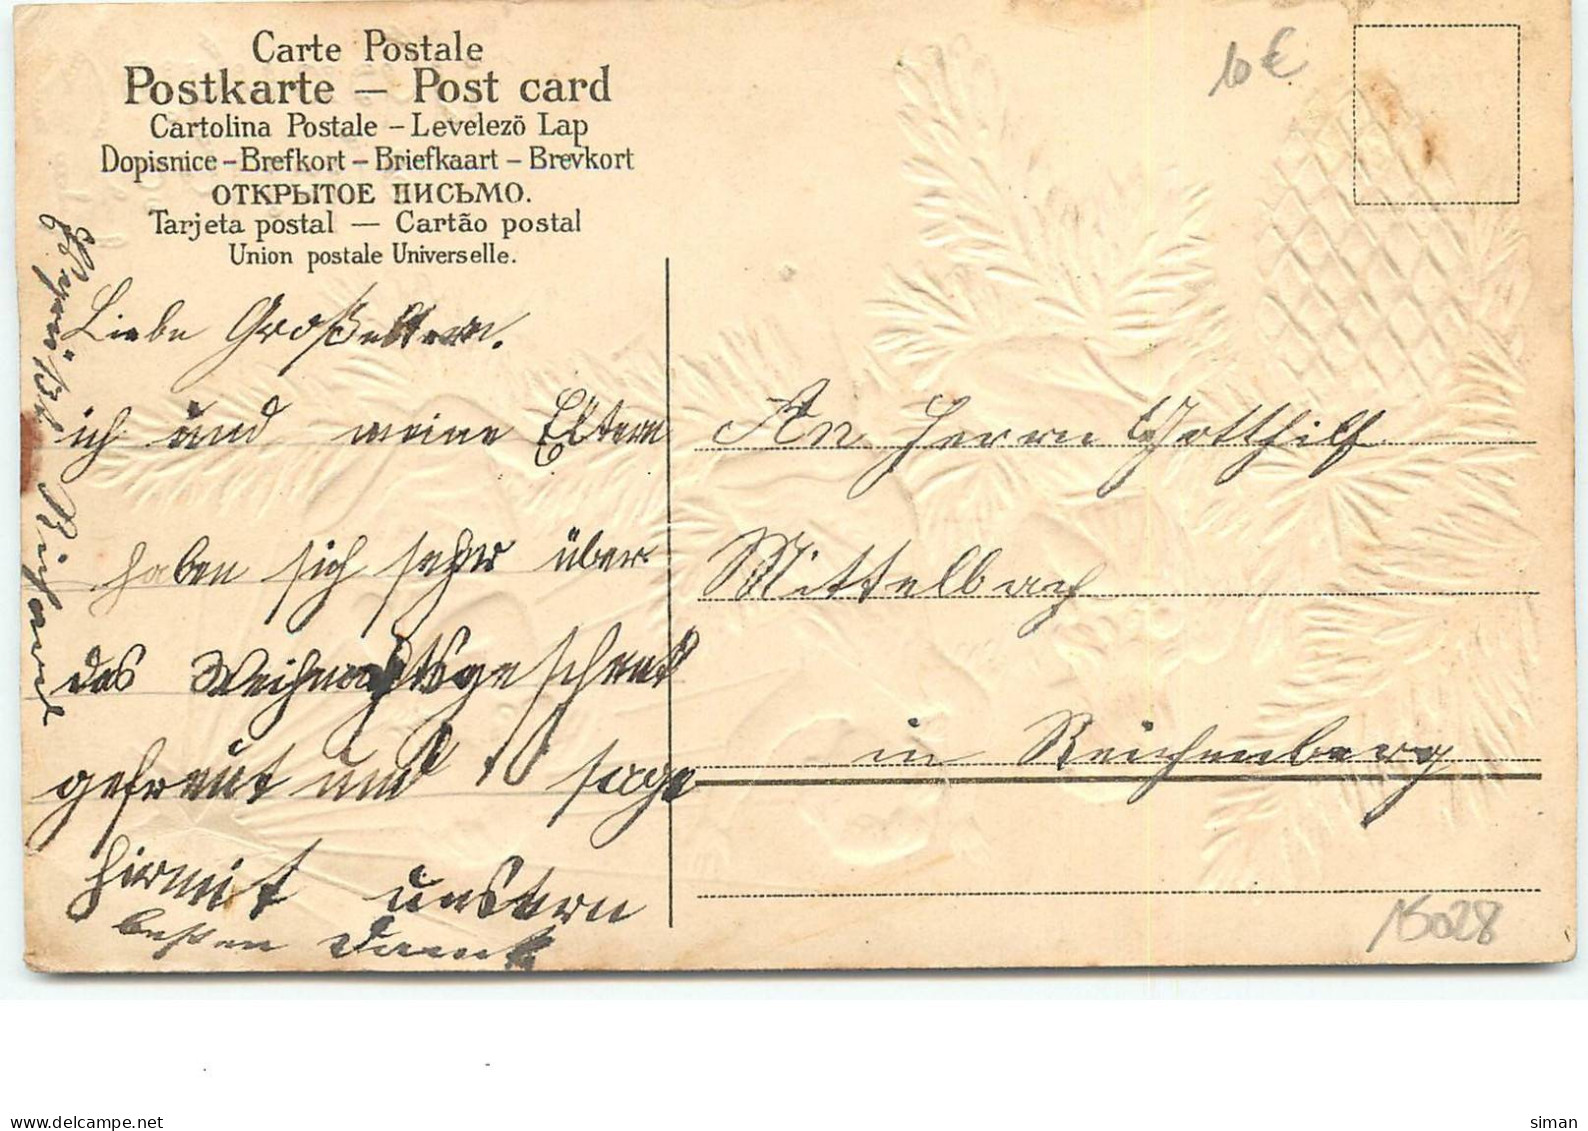 Carte Postale
Postkarte — Post card
Cartolina Postale – Levelezö Lap
Dopisnice – Brefkort – Briefkaart – Brevkort
ОТКРЫТОЕ ПИСЬМО.
Tarjeta postal — Cartão postal
Union postale Universelle.
10 €
Liebe Großeltern.
ich und meine Eltern
haben sich sehr über
das Weihnachtsgeschenk
gefreut und sage
hirmit unsern
besten Dank
Es grüßt Richard
An Herrn Gotthilf
Mittelbach
in Reichenberg
15028
delcampe.net
siman